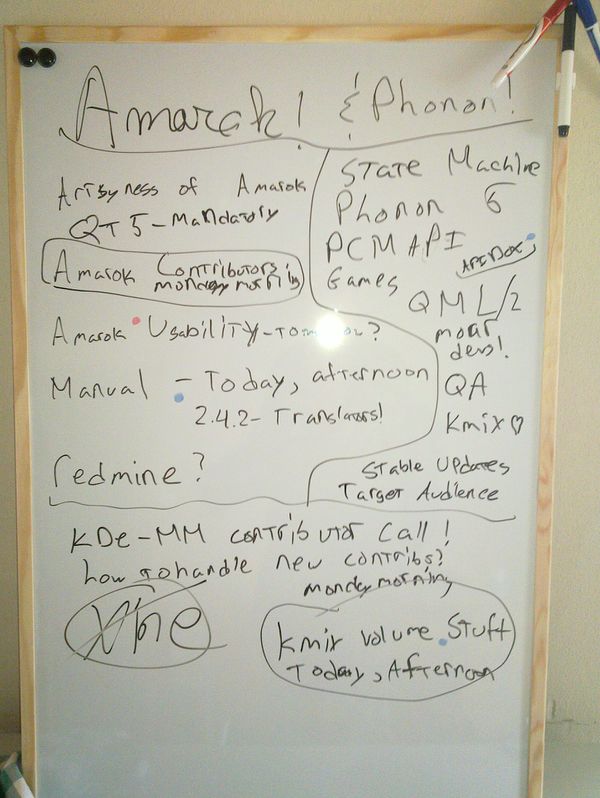 Amarok! & Phonon!
Artsyness of Amarok
QT 5-Mandatory
Amarok Contributors
monday morning
Amarok Usability-Tomorrow?
Manual - Today, afternoon
2.4.2- Translators!
redmine?
State Machine
Phonon 5
PCM API
APIDOX
Games
QML/2
moar
devs!
QA
Kmix♡
Stable Updates
Target Audience
KDe-MM contributor Call!
how to handle new contribs?
monday morning
Xine
Kmix volume Stuff
Today, Afternoon